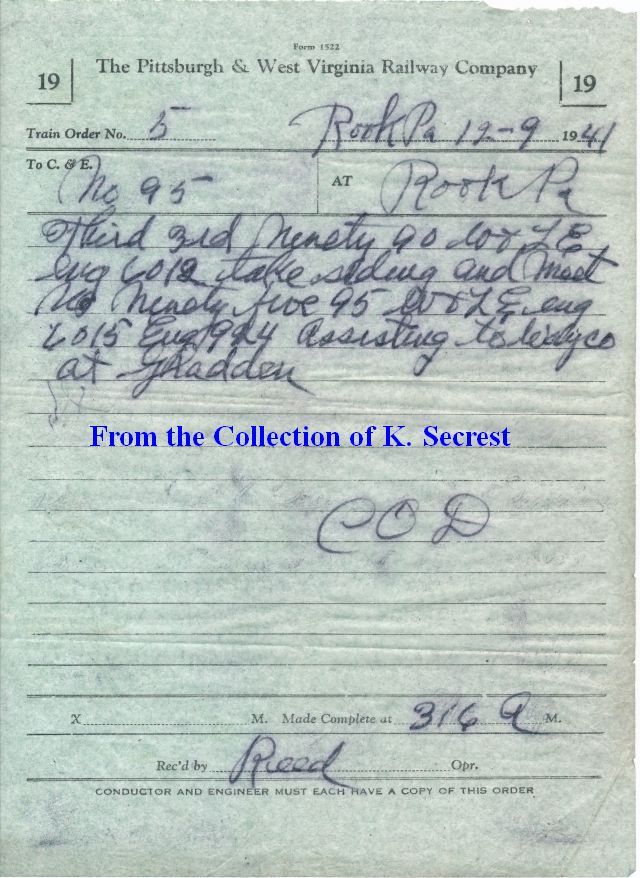 Form 1522
19 The Pittsburgh & West Virginia Railway Company 19
Train Order No. 5 Rook Pa 12-9 1941
To C. & E.
No 95 AT Rook Pa
Third 3rd Ninety 90 W&LE
eng 6012 take siding and meet
No Ninety five 95 W&LE eng
6015 Eng 924 assisting to
at
From the Collection of K. Secrest
COD
X M. Made Complete at 316 A M.
Rec'd by Reed Opr.
CONDUCTOR AND ENGINEER MUST EACH HAVE A COPY OF THIS ORDER